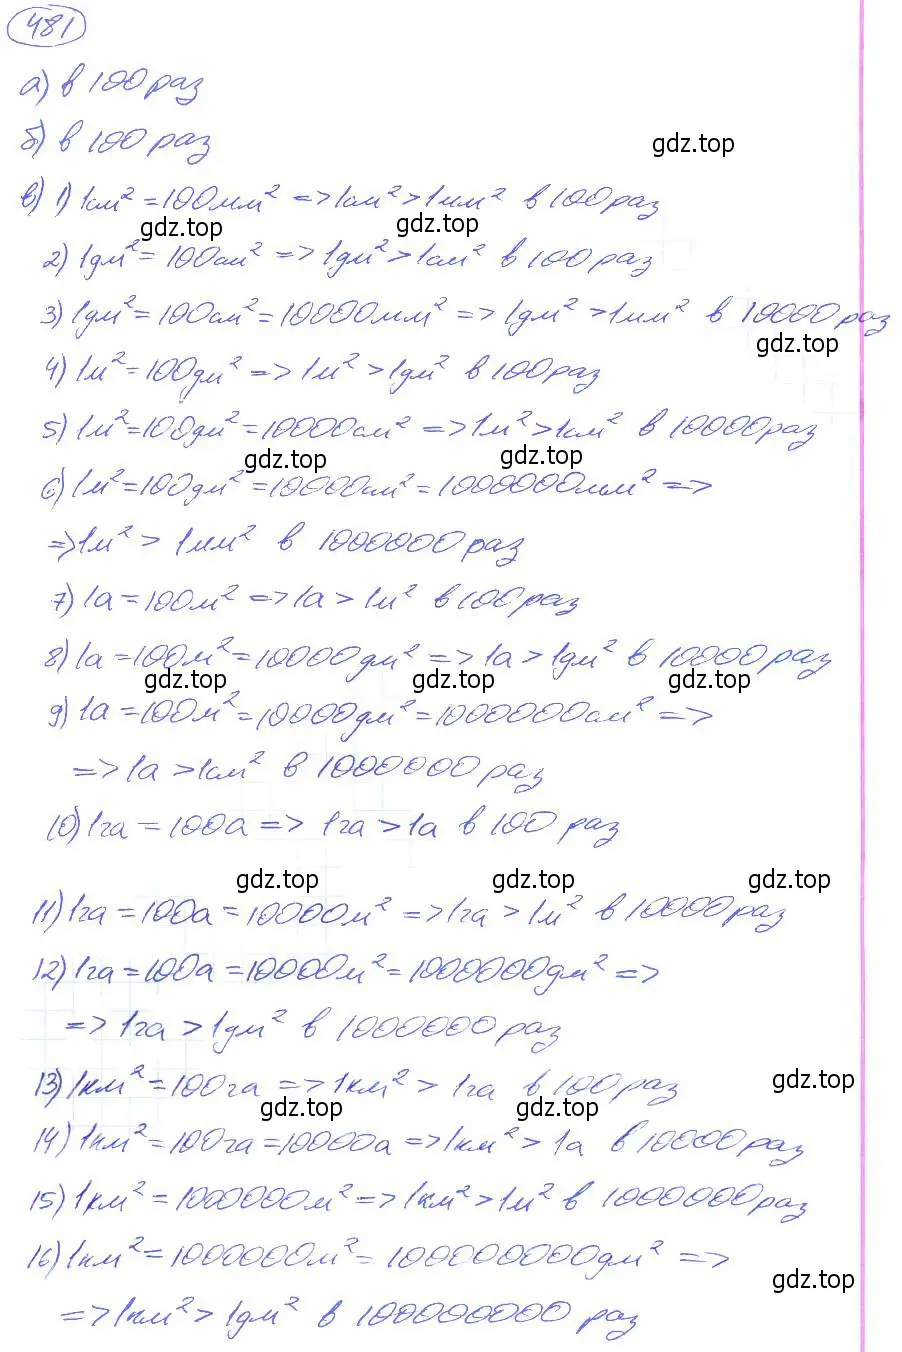 481
а) в 100 раз
б) в 100 раз
gdz.top
в) 1) 1см² = 100мм² => 1см² > 1мм² в 100 раз
gdz.top
2) 1дм² = 100см² => 1дм² > 1см² в 100 раз
3) 1дм² = 100см² = 10000мм² => 1дм² > 1мм² в 10000 раз
gdz.top
4) 1м² = 100дм² => 1м² > 1дм² в 100 раз
5) 1м² = 100дм² = 10000см² => 1м² > 1см² в 10000 раз
gdz.top gdz.top
6) 1м² = 100дм² = 10000см² = 1000000мм² =>
=> 1м² > 1мм² в 1000000 раз
7) 1а = 100м² => 1а > 1м² в 100 раз
8) 1а = 100м² = 10000дм² => 1а > 1дм² в 10000 раз
gdz.top gdz.top gdz.top
9) 1а = 100м² = 10000дм² = 1000000см² =>
=> 1а > 1см² в 1000000 раз
10) 1га = 100а => 1га > 1а в 100 раз
gdz.top gdz.top gdz.top
11) 1га = 100а = 10000м² => 1га > 1м² в 10000 раз
12) 1га = 100а = 10000м² = 1000000дм² =>
=> 1га > 1дм² в 1000000 раз
13) 1км² = 100га => 1км² > 1га в 100 раз
gdz.top
gdz.top gdz.top
14) 1км² = 100га = 10000а => 1км² > 1а в 10000 раз
15) 1км² = 1000000м² => 1км² > 1м² в 1000000 раз
16) 1км² = 1000000м² = 100000000дм² =>
gdz.top
=> 1км² > 1дм² в 100000000 раз